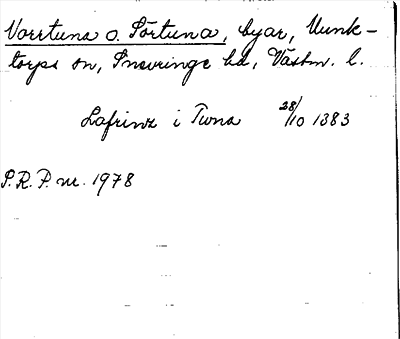 Norrtuna o. Sörtuna, byar, Munk-
torps sn, Snevringe hd, Västm. l.
Lafrinz i Twna 28/10 1383
S.R.P. nr. 1978